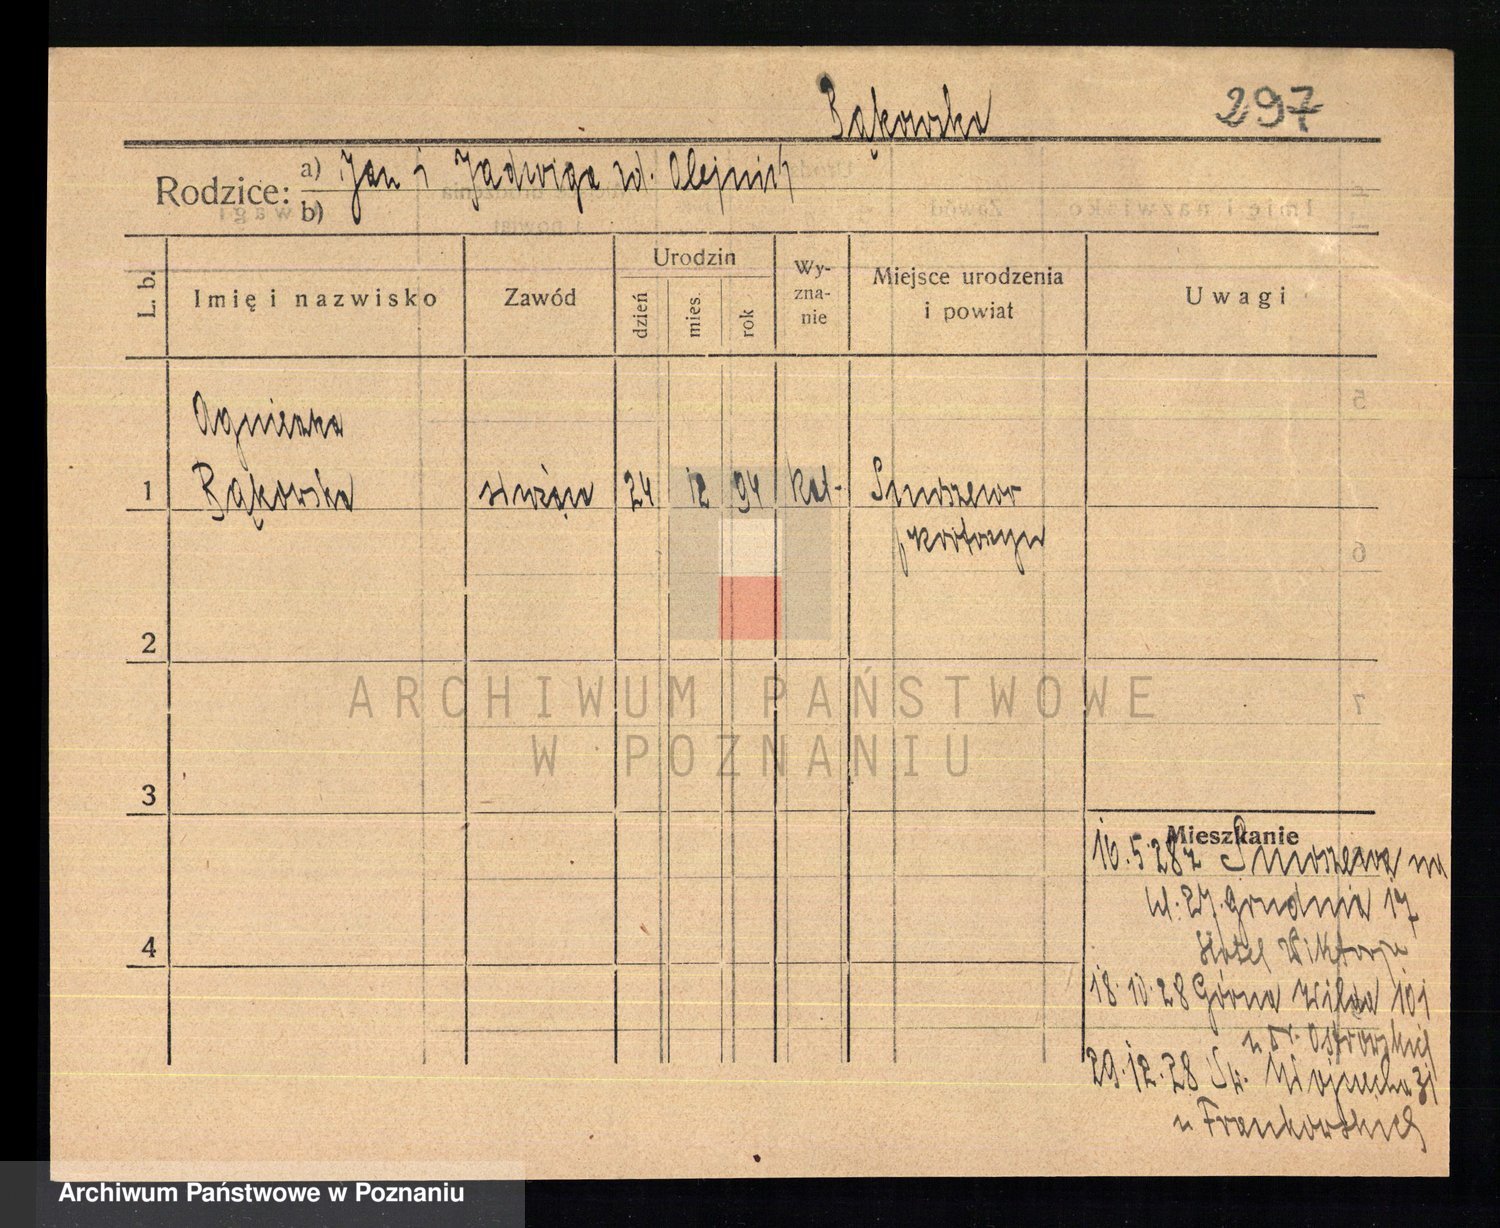 Bąkowska
297
Rodzice: a) Jan i Jadwiga zd. Olejnik
b)
L. b.
Imię i nazwisko
Zawód
Urodzin
dzień
mies.
rok
Wy-
zna-
nie
Miejsce urodzenia
i powiat
Uwagi
Agnieszka
1 Bąkowska służąca 24 12 94 kat.
2
3
4
Mieszkanie
16.5.28 z na
ul. 27 Grudnia 17
Hotel Wiktorja
18.10.28 Górna Wilda 101
u Ostrowskich
29.12.28 Św. Wojciecha 31
u Frankowskich
ARCHIWUM PAŃSTWOWE
W POZNANIU
Archiwum Państwowe w Poznaniu